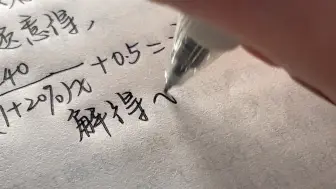 意得,
40
(1+20%)x + 0.5 =
解得